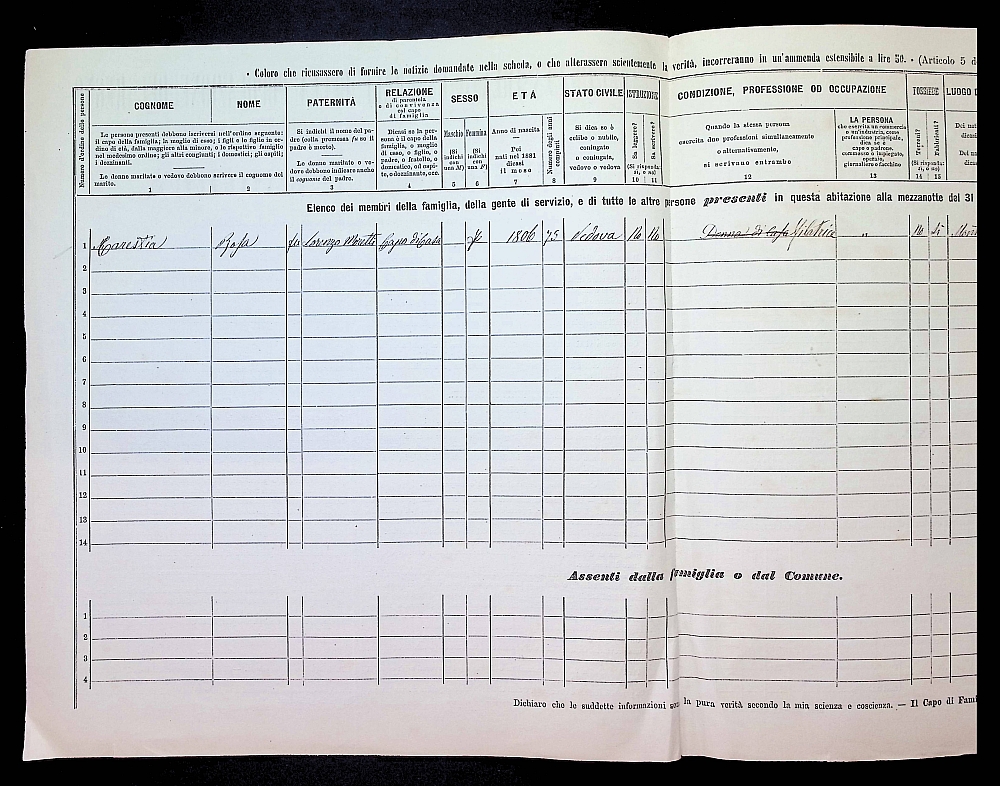 • Coloro che ricusassero di fornire le notizie domandate nella scheda, o che alterassero scientemente la verità, incorreranno in un'ammenda estensibile a lire 50. • (Articolo 5 d
Numero d'ordine delle persone
COGNOME
NOME
PATERNITÀ
RELAZIONE
di parentela
o di convivenza
col capo
di famiglia
SESSO
ETÀ
STATO CIVILE
ISTRUZIONE
CONDIZIONE, PROFESSIONE OD OCCUPAZIONE
POSSIEDE
LUOGO D
Le persone presenti debbono iscriversi nell'ordine seguente:
il capo della famiglia; la moglie di esso; i figli e le figlie in or-
dine di età, dalla maggiore alla minore, o le rispettive famiglie
nel medesimo ordine; gli altri congiunti; i domestici; gli ospiti;
i dozzinanti.
Le donne maritate o vedove debbono scrivere il cognome del
marito.
Si indichi il nome del pa-
dre (colla premessa fu se il
padre è morto).
Le donne maritate o ve-
dove debbono indicare anche
il cognome del padre.
Dicasi se la per-
sona è il capo della
famiglia, o moglie
di esso, o figlio, o
padre, o fratello, o
domestico, od ospi-
te, o dozzinante, ecc.
Maschio
(Si
indichi
con
una M)
Femmina
(Si
indichi
con
una F)
Anno di nascita
Pei
nati nel 1881
dicasi
il mese
Numero degli anni
compiuti
Si dica se è
celibe o nubile,
coniugato
o coniugata,
vedovo o vedova
Sa leggere?
Sa scrivere?
(Si risponda:
sì, o no)
Quando la stessa persona
esercita due professioni simultaneamente
o alternativamente,
si scrivano entrambe
LA PERSONA
che esercita un commercio
o un'industria, come
professione principale,
dica se è
capo o padrone,
commesso o impiegato,
operaio,
giornaliero o facchino
Terreni?
Fabbricati?
(Si risponda:
sì, o no)
1 2 3 4 5 6 7 8 9 10 11 12 13 14 15
Elenco dei membri della famiglia, della gente di servizio, e di tutte le altre persone presenti in questa abitazione alla mezzanotte del 31
1 Rosa fu Lorenzo Moretti Capo di Casa F 1806 75 Vedova No No Donna di Casa Filatrice „ No Si
2
3
4
5
6
7
8
9
10
11
12
13
14
Assenti dalla famiglia o dal Comune.
1
2
3
4
Dichiaro che le suddette informazioni son la pura verità secondo la mia scienza e coscienza. — Il Capo di Fami